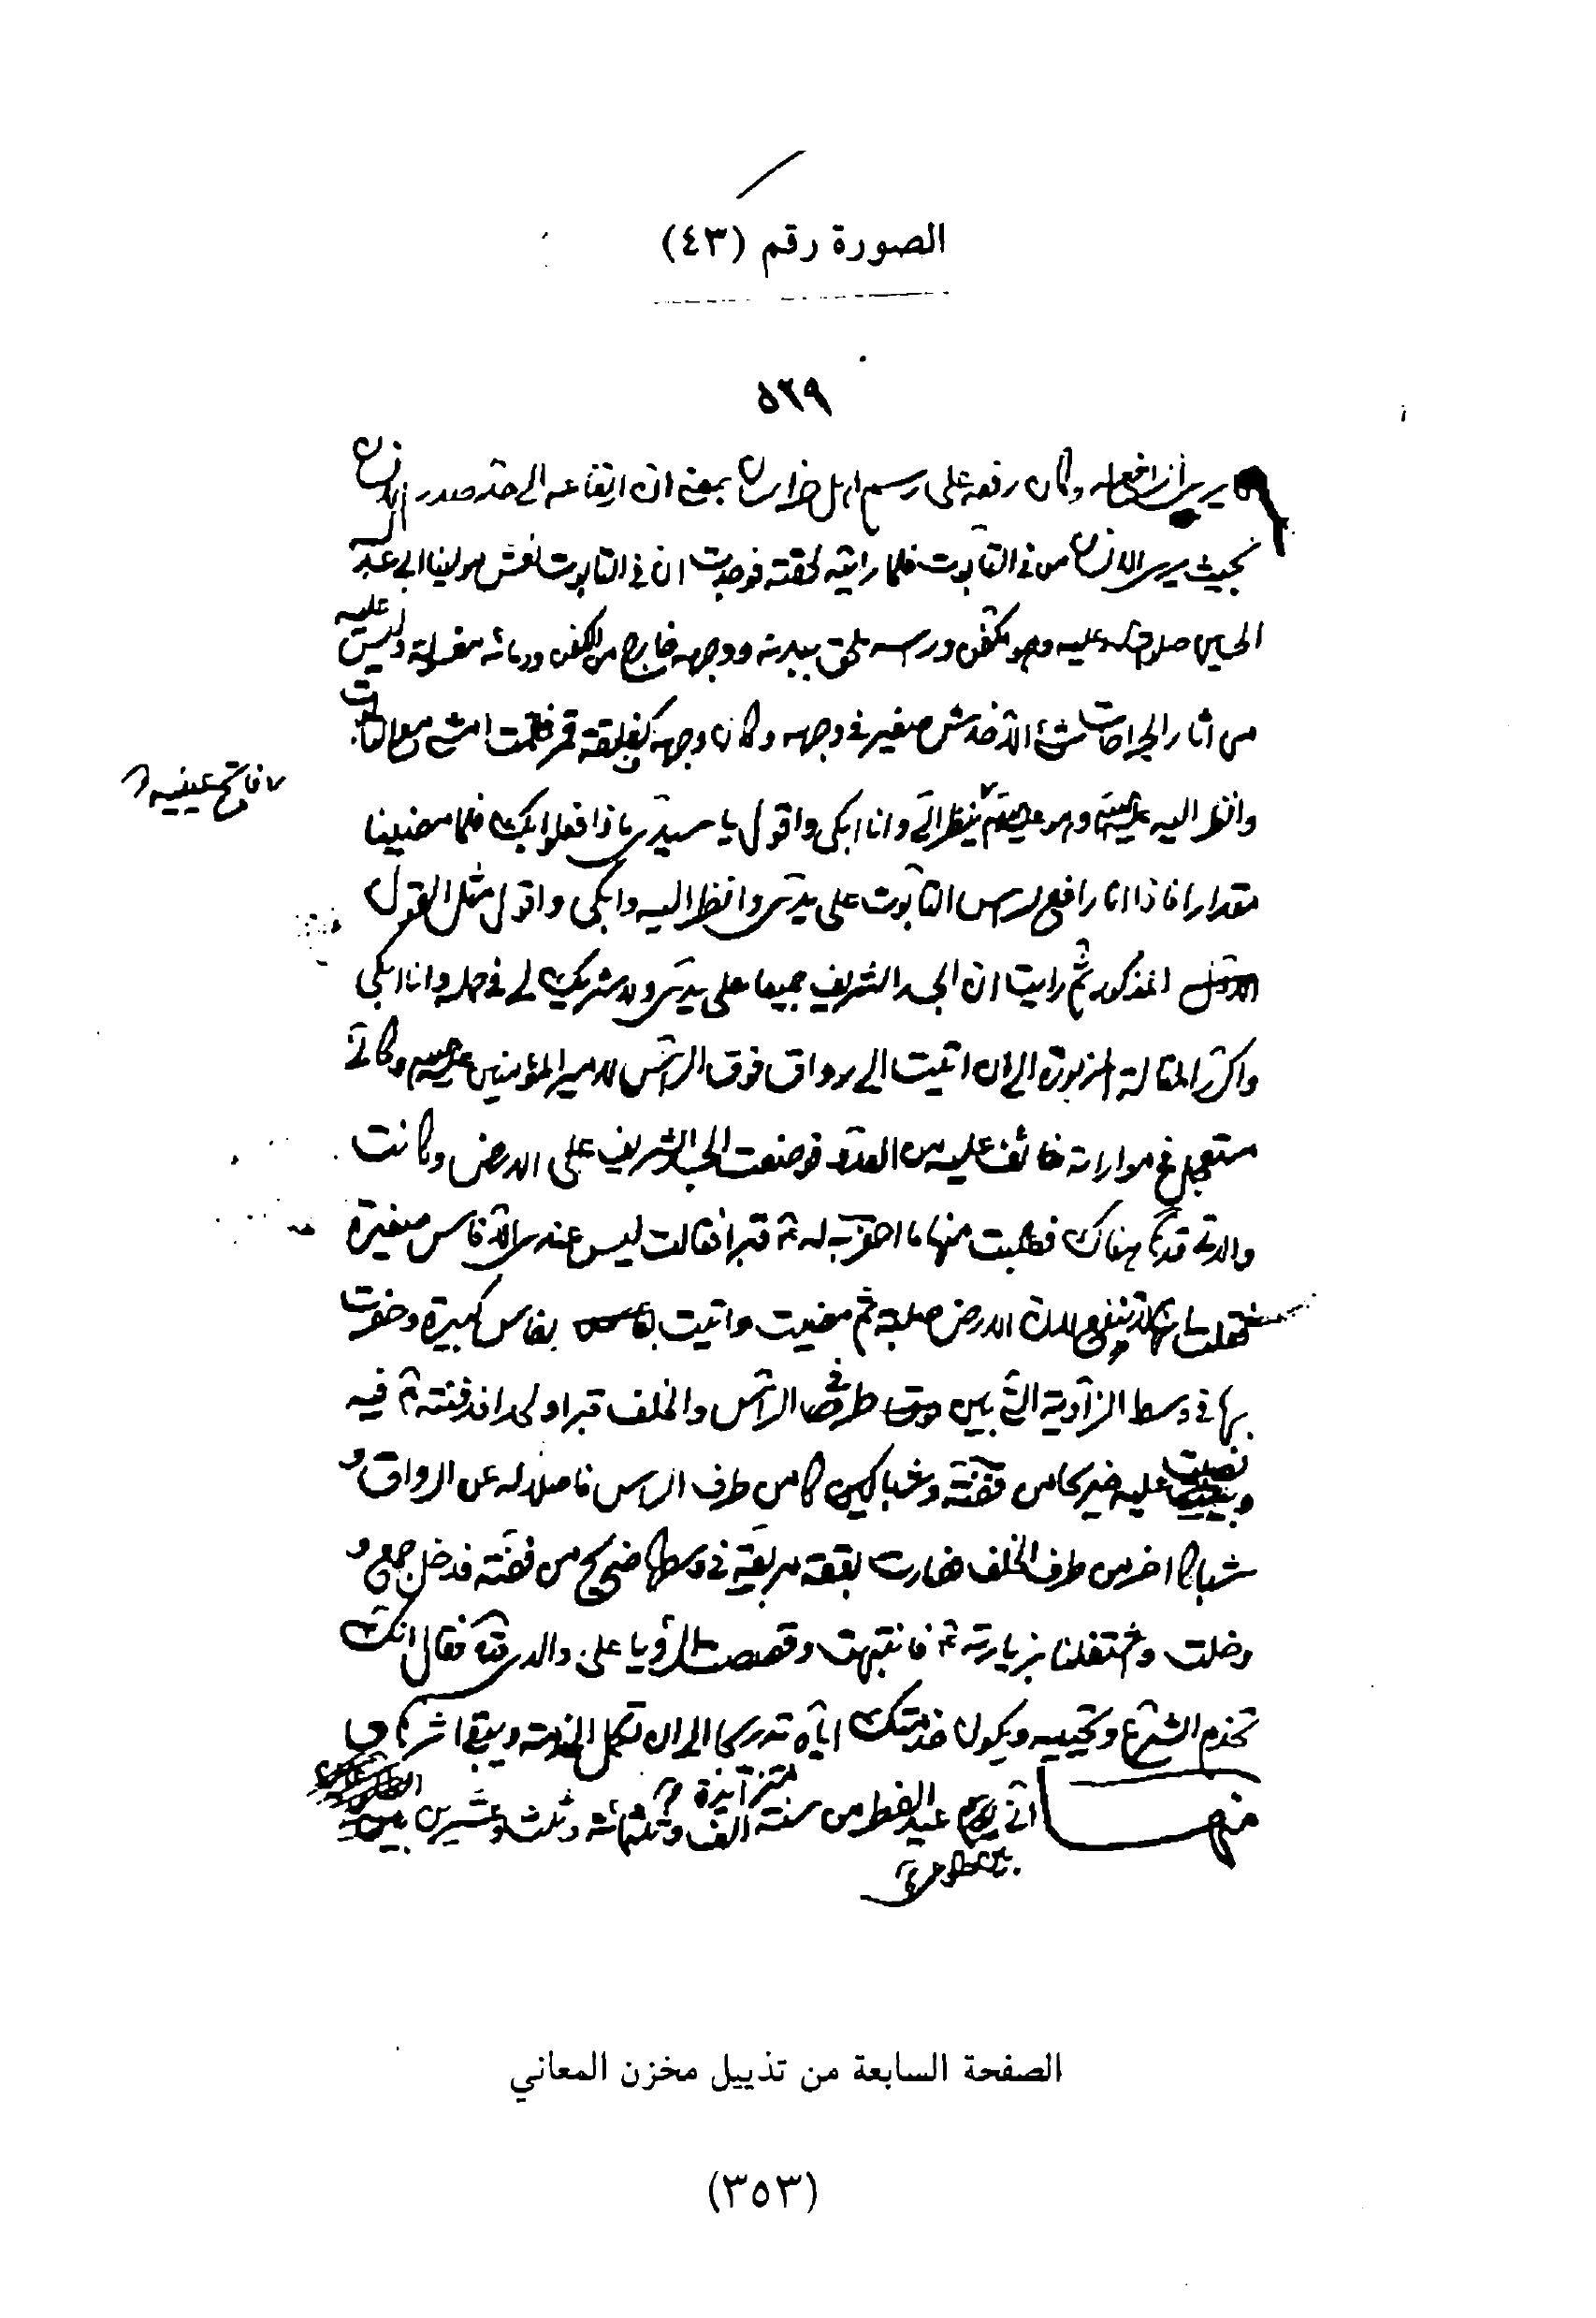 الصورة رقم (٤٣)
٥٢٩
وكان رفعه على رسم اهل خراسان بمعنى ان ارتفاعه الى حد صدر الانسان
بحيث يرى الانسان من في التابوت فلما رايته لحقته فوجدت ان في التابوت نعش مولينا ابي عبد الله
الحسين صلوات الله عليه وهو مكفن وراسه ملحق ببدنه ووجهه خارج من الكفن ودمائه مغسولة وليس عليه
من اثار الجراحات شئ الا خدش صغير في وجهه وكان وجهه كفلقة قمر فقمت امشي مع التابوت
فاتح عينيه
وانظر اليه وهو ينظر الي وانا ابكي واقول يا سيدي ماذا فعلوا بك فلما مضينا
مقدارا فاذا انا رافع لراس التابوت على يدي وانظر اليه وابكي واقول مثل القول
المذكور ثم رايت ان الجسد الشريف جميعا على يدي ولا شريك لي في حمله وانا ابكي
واكرر المقالة المزبورة الى ان اتيت الى رواق فوق الراس لامير المؤمنين وكاني
مستعجل في مواراته خائف عليه من العدو فوضعت الجسد الشريف على الارض وكانت
والدتي هناك فطلبت منها ما احفر به له قبرا فقالت ليس عندي الا فاس صغيرة
فقلت لا تنفع لان الارض صلبة ثم مضيت واتيت بفاس كبيرة وحفرت
بها في وسط الزاوية التي بين طرفي الراس والخلف قبرا فدفنته فيه
ونصبت عليه ضريحا من فضة وشباكين كا من طرف الراس فاصلا له عن الرواق و
شباكا اخر من طرف الخلف فصارت بقعة مربعة في وسطها ضريح من فضة فدخل جمع و
دخلت واشتغلنا بزيارته فانتبهت وقصصت الرؤيا على والدي فقال انك
تخدم الشرع وتحييه ويكون خدمتك اياه تدريجا الى ان تكمل الخدمة ويبقى
منها اني يوم عيد الفطر من سنة الف وثلثمائة وثلث وعشرين
الصفحة السابعة من تذييل مخزن المعاني
(٣٥٣)